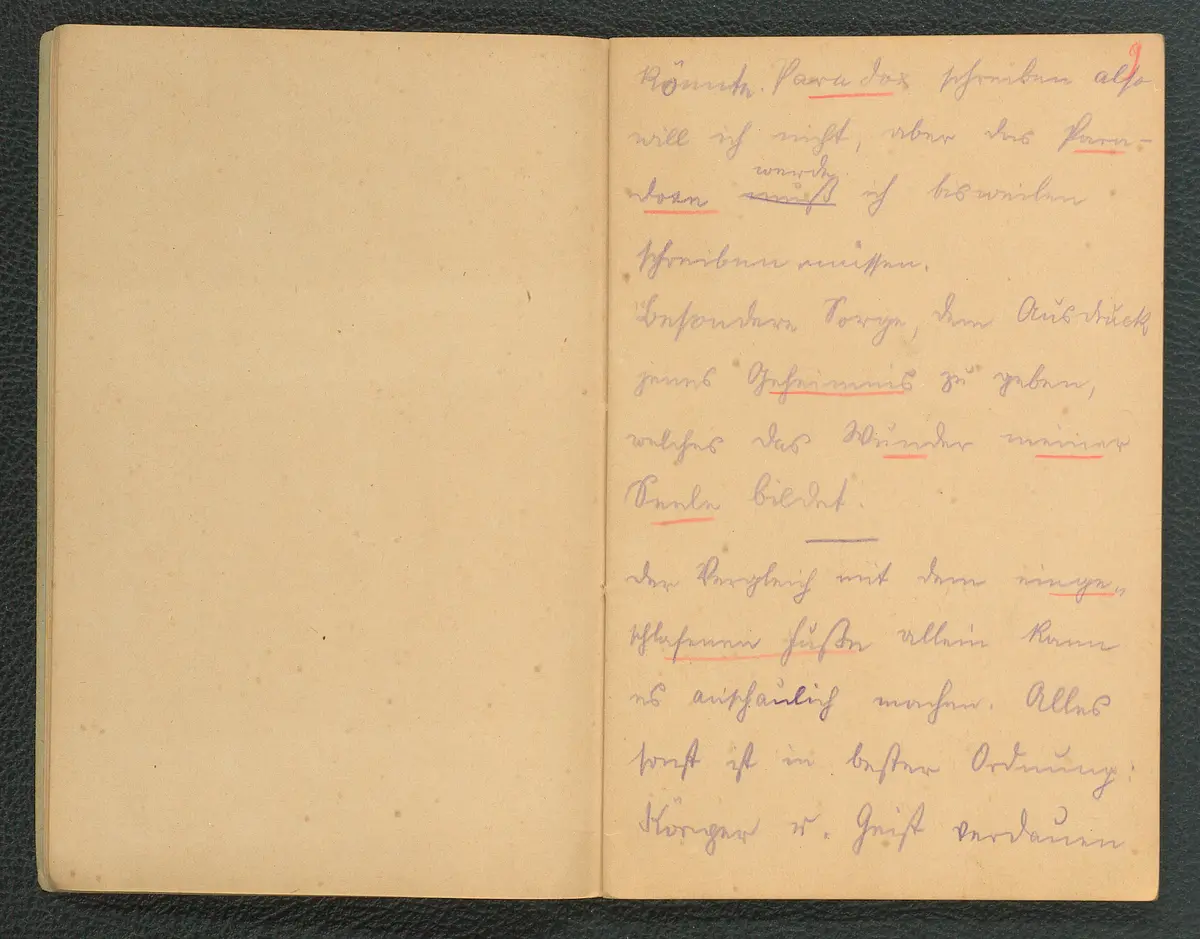 9
könnte. Paradox schreiben also
will ich nicht, aber das Para-
doxe muß ich bisweilen
werde
schreiben müssen.
Besondere Sorge, dem Ausdruck
jenes Geheimnis zu geben,
welches das Wunder meiner
Seele bildet.
der Vergleich mit dem einge„
schlafenen Fuße allein kann
es anschaulich machen. Alles
sonst ist in bester Ordnung:
Körper u. Geist verdauen